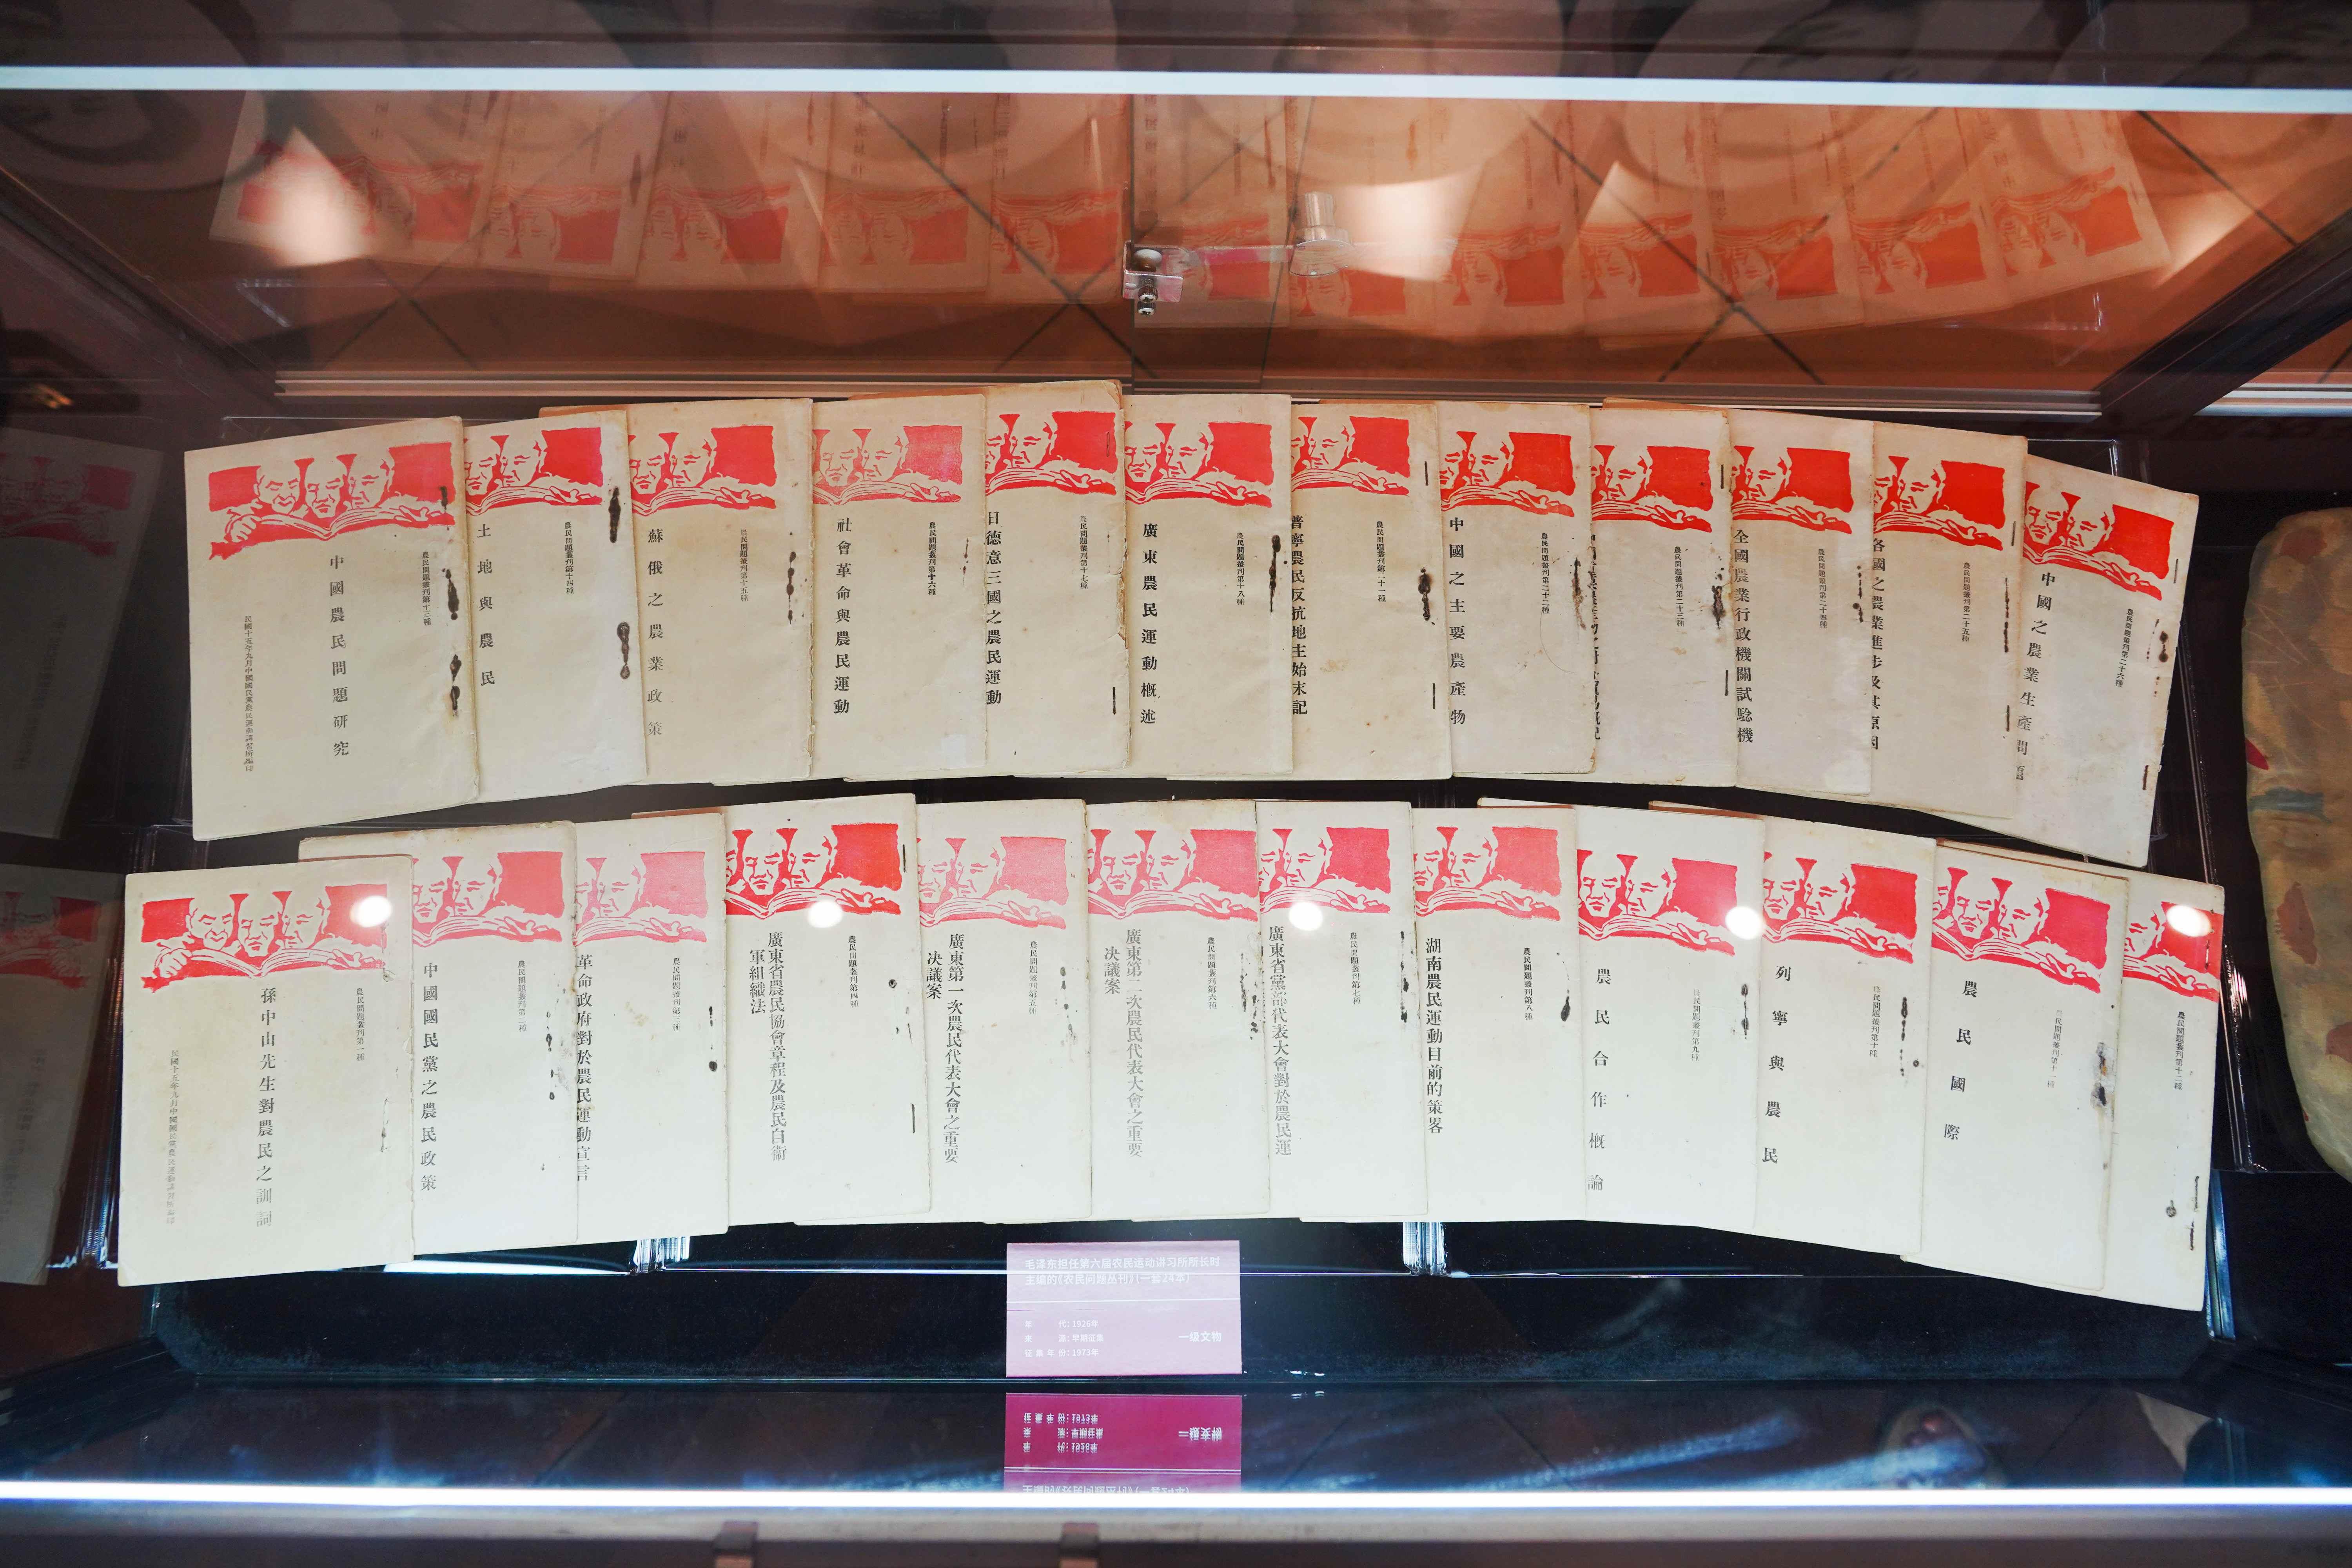 農民問題叢刊第十三種
中國農民問題研究
民國十五年九月中國國民黨農民運動講習所編印
農民問題叢刊第十四種
土地與農民
農民問題叢刊第十五種
蘇俄之農業政策
農民問題叢刊第十六種
社會革命與農民運動
農民問題叢刊第十七種
日德意三國之農民運動
農民問題叢刊第十八種
廣東農民運動概述
農民問題叢刊第二十一種
普寧農民反抗地主始末記
農民問題叢刊第二十二種
中國之主要農產物
農民問題叢刊第二十三種
農民問題叢刊第二十四種
全國農業行政機關試驗機
農民問題叢刊第二十五種
各國之農業進步及其原因
農民問題叢刊第二十六種
中國之農業生產問題
農民問題叢刊第一種
孫中山先生對農民之訓詞
民國十五年九月中國國民黨農民運動講習所編印
農民問題叢刊第二種
中國國民黨之農民政策
農民問題叢刊第三種
革命政府對於農民運動宣言
農民問題叢刊第四種
廣東省農民協會章程及農民自衛
軍組織法
農民問題叢刊第五種
廣東第一次農民代表大會之重要
決議案
農民問題叢刊第六種
廣東第二次農民代表大會之重要
決議案
農民問題叢刊第七種
廣東省黨部代表大會對於農民運
農民問題叢刊第八種
湖南農民運動目前的策畧
農民問題叢刊第九種
農民合作概論
農民問題叢刊第十種
列寧與農民
農民問題叢刊第十一種
農民國際
農民問題叢刊第十二種
毛泽东担任第六届农民运动讲习所所长时
主编的《农民问题丛刊》（一套24本）
年 代：1926年
来 源：早期征集
征集年份：1973年
一级文物